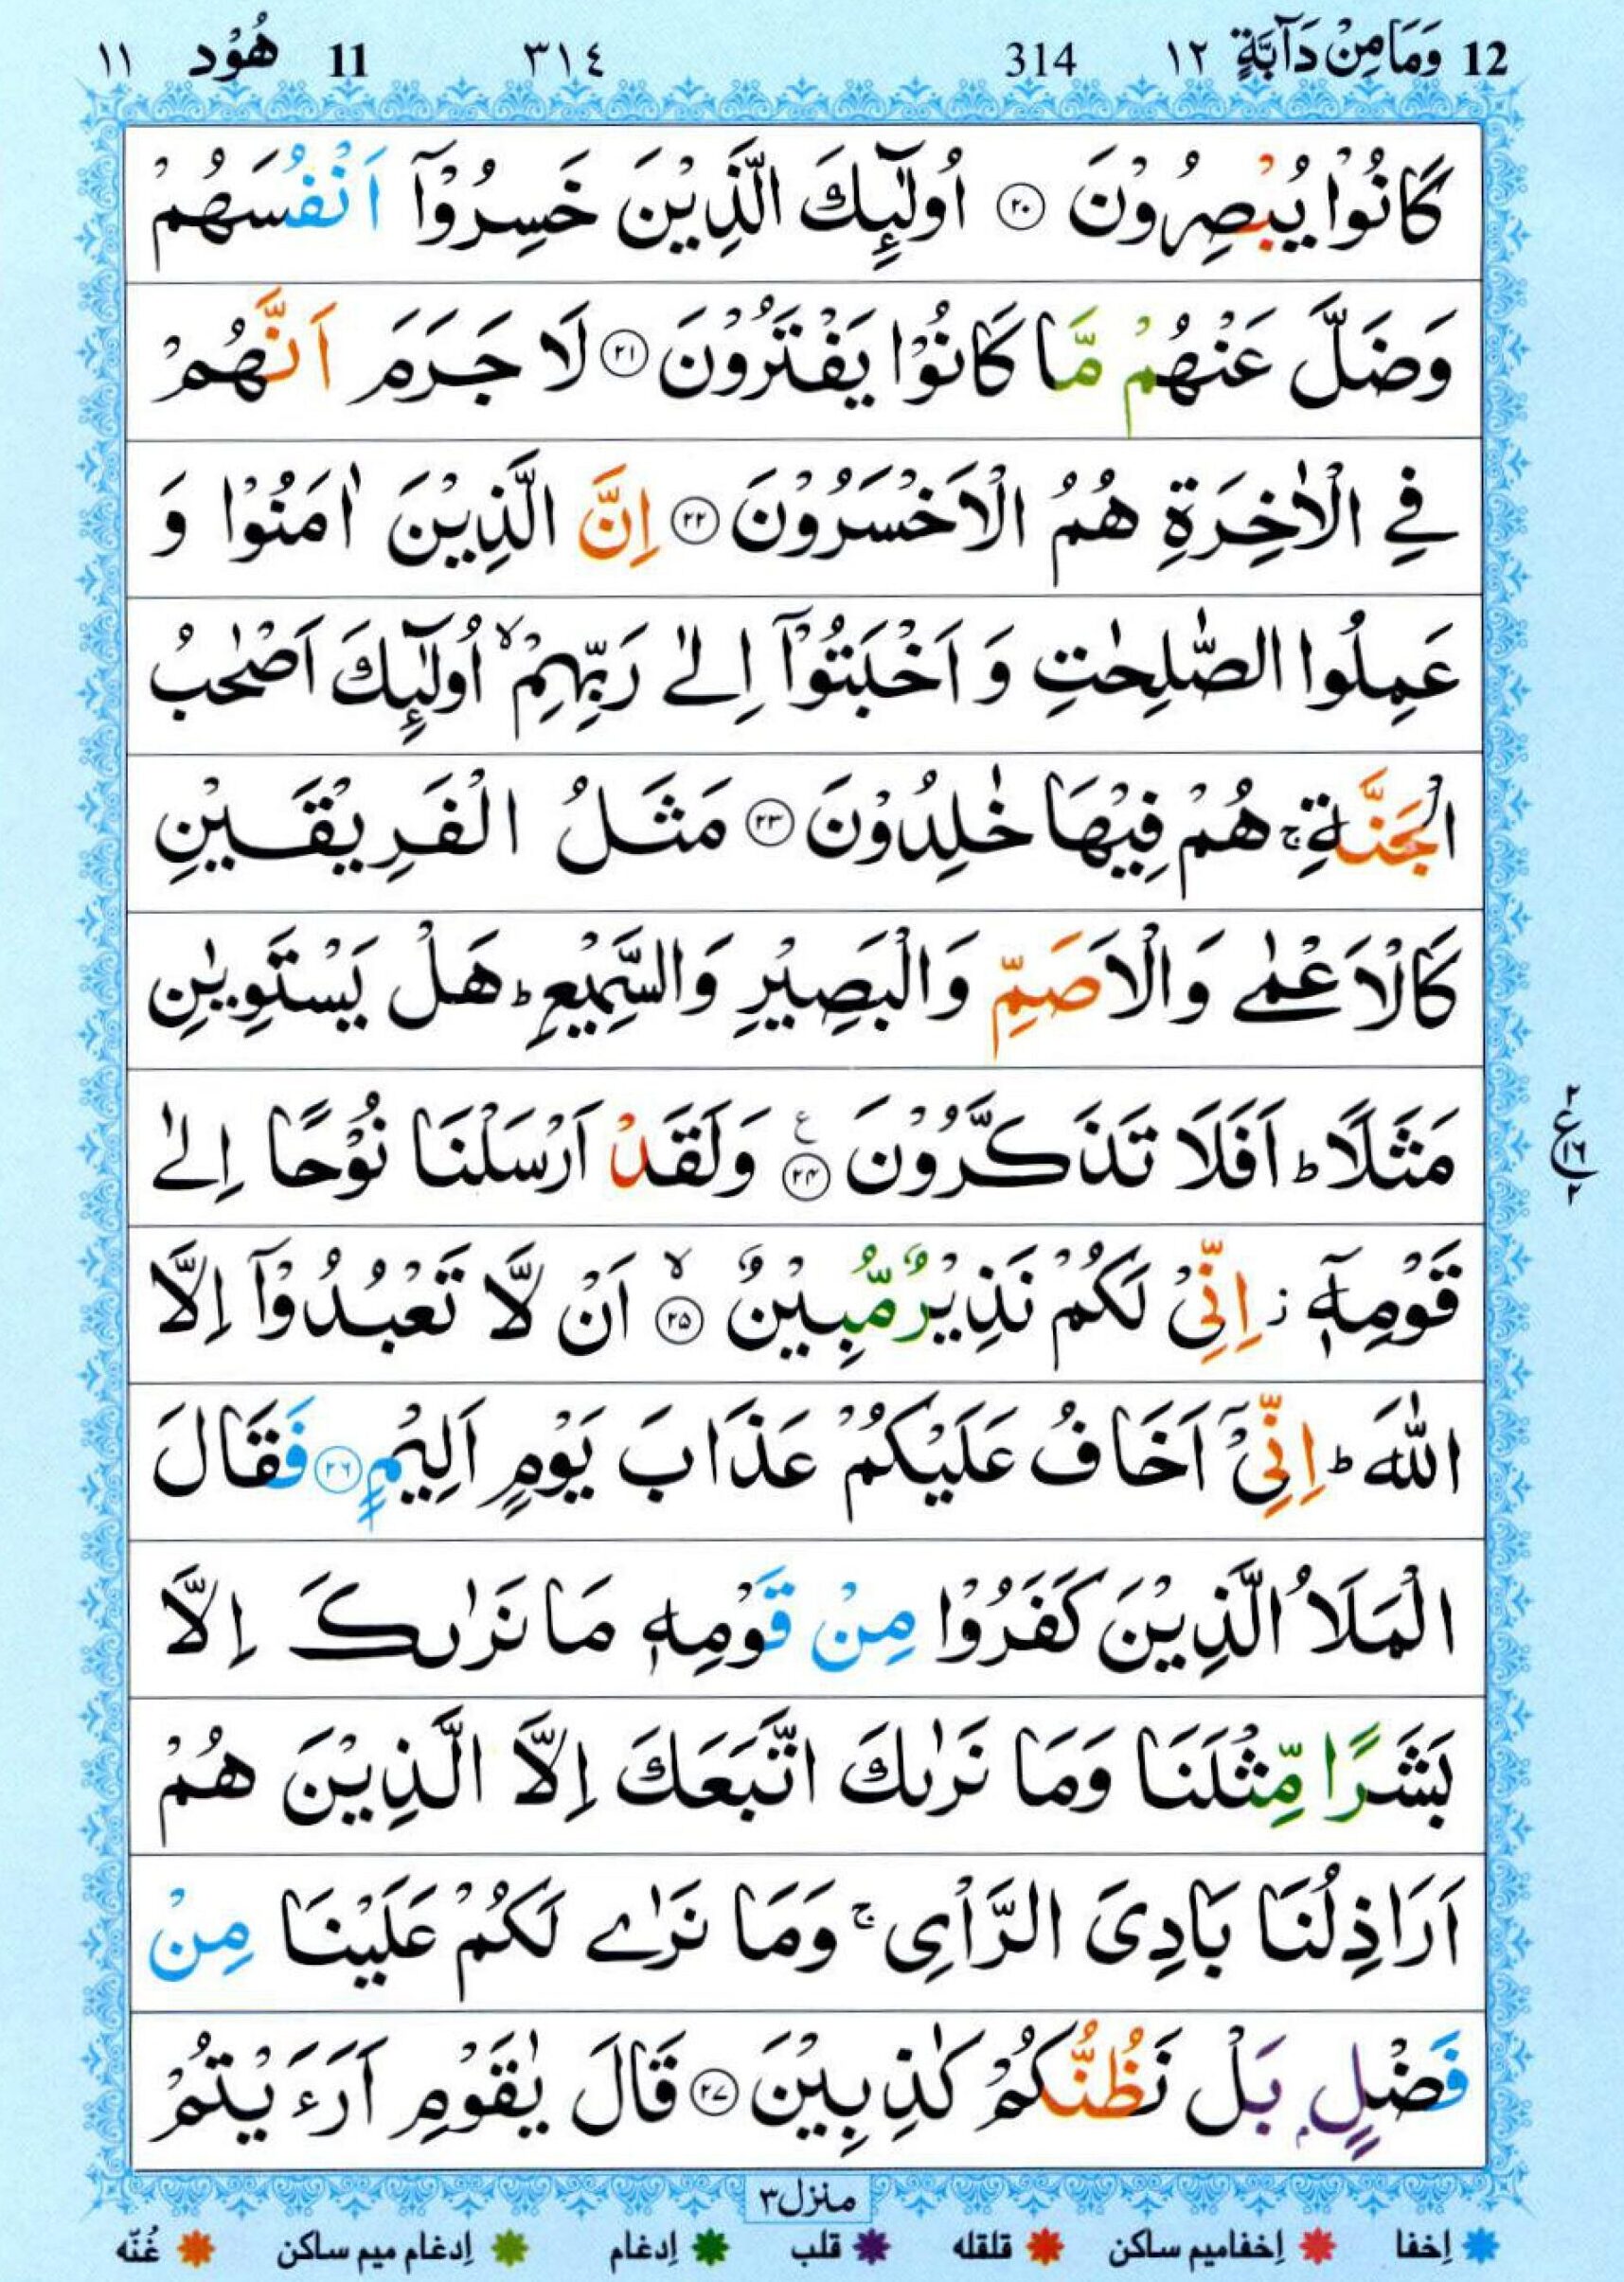 12 وَمَا مِنْ دَآبَّةٍ ١٢ 314 ٣١٤ 11 هُوْد ١١
كَانُوْا يُبْصِرُوْنَ ﴿۲۰﴾ اُولٰٓئِكَ الَّذِيْنَ خَسِرُوْٓا اَنْفُسَهُمْ
وَضَلَّ عَنْهُمْ مَّا كَانُوْا يَفْتَرُوْنَ ﴿۲۱﴾ لَا جَرَمَ اَنَّهُمْ
فِي الْاٰخِرَةِ هُمُ الْاَخْسَرُوْنَ ﴿۲۲﴾ اِنَّ الَّذِيْنَ اٰمَنُوْا وَ
عَمِلُوا الصّٰلِحٰتِ وَ اَخْبَتُوْٓا اِلٰى رَبِّهِمْ ۙ اُولٰٓئِكَ اَصْحٰبُ
الْجَنَّةِ ۚ هُمْ فِيْهَا خٰلِدُوْنَ ﴿۲۳﴾ مَثَلُ الْفَرِيْقَيْنِ
كَالْاَعْمٰى وَالْاَصَمِّ وَالْبَصِيْرِ وَالسَّمِيْعِ ؕ هَلْ يَسْتَوِيٰنِ
مَثَلًا ؕ اَفَلَا تَذَكَّرُوْنَ ﴿۲۴﴾ ع وَلَقَدْ اَرْسَلْنَا نُوْحًا اِلٰى
۲ ع ۱۶ ۲
قَوْمِهٖٓ ز اِنِّيْ لَكُمْ نَذِيْرٌ مُّبِيْنٌ ۙ ﴿۲۵﴾ اَنْ لَّا تَعْبُدُوْٓا اِلَّا
اللّٰهَ ؕ اِنِّيْٓ اَخَافُ عَلَيْكُمْ عَذَابَ يَوْمٍ اَلِيْمٍ ﴿۲۶﴾ فَقَالَ
الْمَلَاُ الَّذِيْنَ كَفَرُوْا مِنْ قَوْمِهٖ مَا نَرٰىكَ اِلَّا
بَشَرًا مِّثْلَنَا وَمَا نَرٰىكَ اتَّبَعَكَ اِلَّا الَّذِيْنَ هُمْ
اَرَاذِلُنَا بَادِيَ الرَّاْيِ ۚ وَمَا نَرٰى لَكُمْ عَلَيْنَا مِنْ
فَضْلٍۭ بَلْ نَظُنُّكُمْ كٰذِبِيْنَ ﴿۲۷﴾ قَالَ يٰقَوْمِ اَرَءَيْتُمْ
منزل ٣
إخفا إخفاميم ساكن قلقله قلب إدغام إدغام ميم ساكن غُنّه